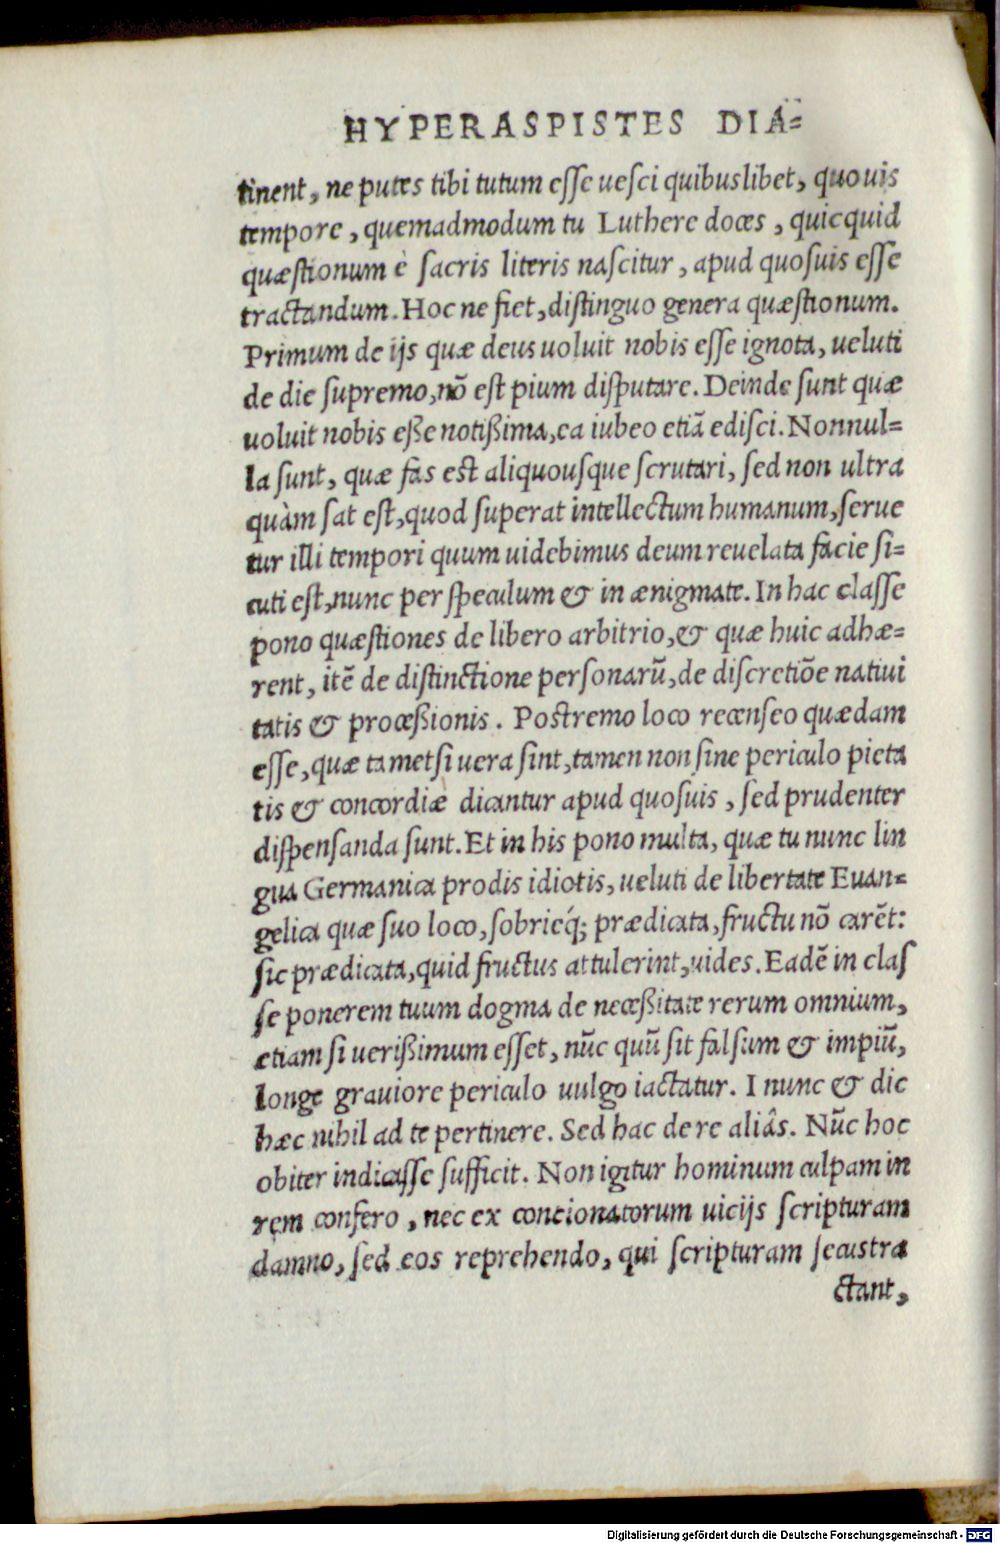 HYPERASPISTES DIA=
tinent, ne putes tibi tutum esse uesci quibuslibet, quouis
tempore, quemadmodum tu Luthere doces, quicquid
quæstionum è sacris literis nascitur, apud quosuis esse
tractandum. Hoc ne fiet, distinguo genera quæstionum.
Primum de ijs quæ deus uoluit nobis esse ignota, ueluti
de die supremo, nõ est pium disputare. Deinde sunt quæ
uoluit nobis eße notißima, ea iubeo etiã edisci. Nonnul=
la sunt, quæ fas est aliquousque scrutari, sed non ultra
quàm sat est, quod superat intellectum humanum, serue
tur illi tempori quum uidebimus deum reuelata facie si=
cuti est, nunc per speculum & in ænigmate. In hac classe
pono quæstiones de libero arbitrio, & quæ huic adhæ=
rent, itẽ de distinctione personarũ, de discretiõe natiui
tatis & proceßionis. Postremo loco recenseo quædam
esse, quæ tametsi uera sint, tamen non sine periculo pieta
tis & concordiæ dicantur apud quosuis, sed prudenter
dispensanda sunt. Et in his pono multa, quæ tu nunc lin
gua Germanica prodis idiotis, ueluti de libertate Euan=
gelica quæ suo loco, sobrieq́; prædicata, fructu nõ carẽt:
sic prædicata, quid fructus attulerint, uides. Eadẽ in clas
se ponerem tuum dogma de neceßitate rerum omnium,
etiam si uerißimum esset, nũc quũ sit falsum & impiũ,
longe grauiore periculo uulgo iactatur. I nunc & dic
hæc nihil ad te pertinere. Sed hac de re aliâs. Nũc hoc
obiter indicasse sufficit. Non igitur hominum culpam in
rem confero, nec ex concionatorum uicijs scripturam
damno, sed eos reprehendo, qui scripturam secustra
ctant,
Digitalisierung gefördert durch die Deutsche Forschungsgemeinschaft - DFG